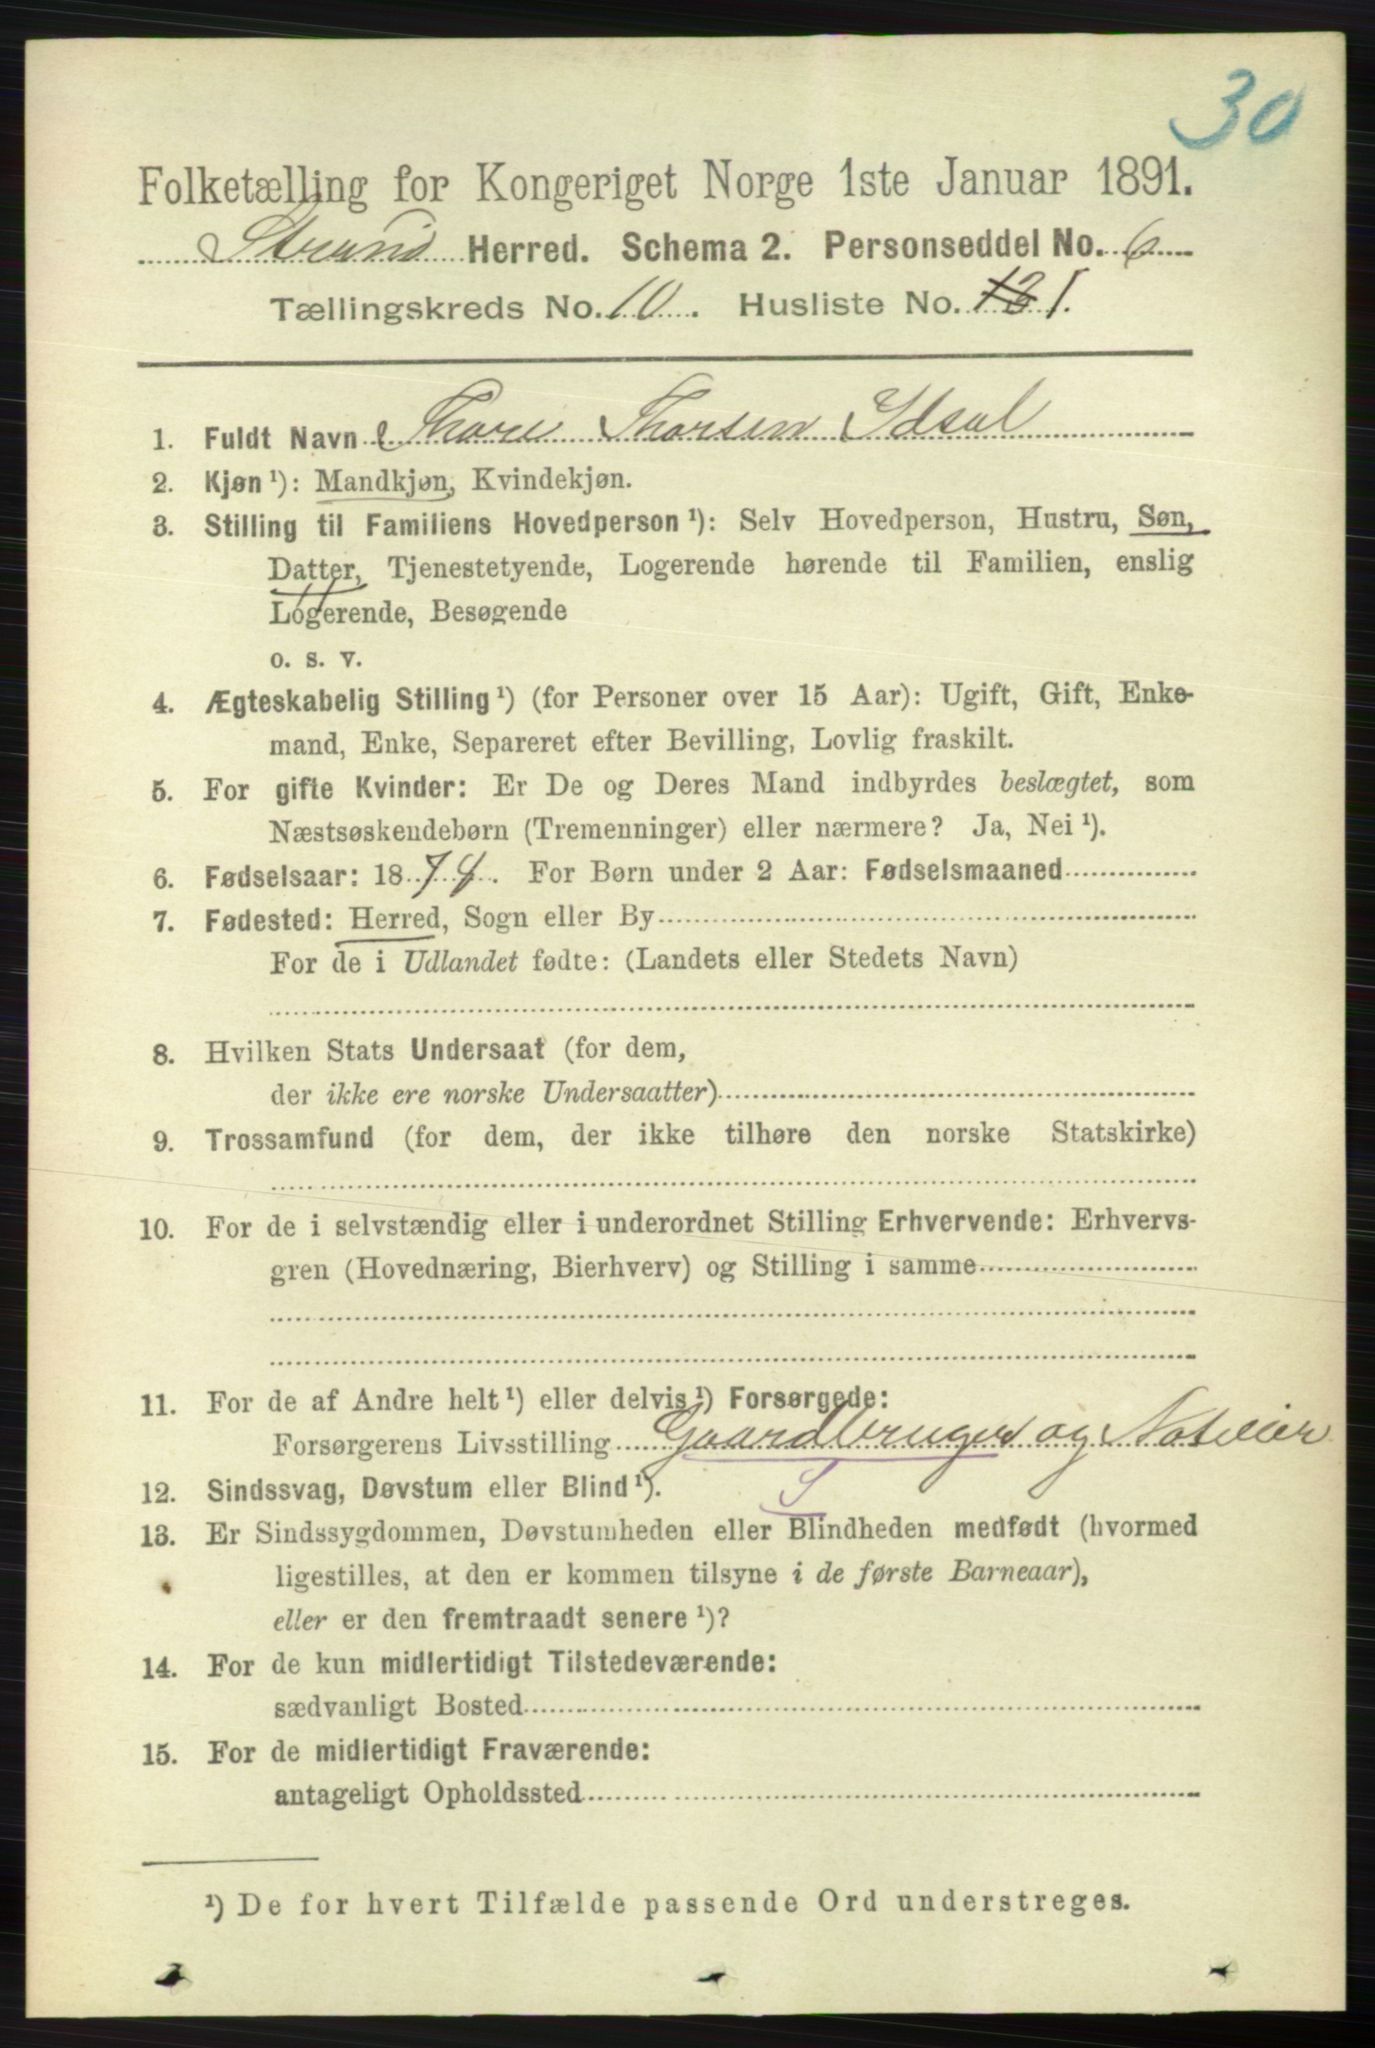 30
Folketælling for Kongeriget Norge 1ste Januar 1891.
Strand Herred. Schema 2. Personseddel No. 6
Tællingskreds No. 10. Husliste No. 1.
1. Fuldt Navn Thore Thorsen Idsal
2. Kjøn ¹): Mandkjøn, Kvindekjøn.
3. Stilling til Familiens Hovedperson ¹): Selv Hovedperson, Hustru, Søn,
Datter, Tjenestetyende, Logerende hørende til Familien, enslig
Logerende, Besøgende
o. s. v.
4. Ægteskabelig Stilling ¹) (for Personer over 15 Aar): Ugift, Gift, Enke-
mand, Enke, Separeret efter Bevilling, Lovlig fraskilt.
5. For gifte Kvinder: Er De og Deres Mand indbyrdes beslægtet, som
Næstsøskendebørn (Tremenninger) eller nærmere? Ja, Nei ¹).
6. Fødselsaar: 1874. For Børn under 2 Aar: Fødselsmaaned
7. Fødested: Herred, Sogn eller By
For de i Udlandet fødte: (Landets eller Stedets Navn)
8. Hvilken Stats Undersaat (for dem,
der ikke ere norske Undersaatter)
9. Trossamfund (for dem, der ikke tilhøre den norske Statskirke)
10. For de i selvstændig eller i underordnet Stilling Erhvervende: Erhvervs-
gren (Hovednæring, Bierhverv) og Stilling i samme
11. For de af Andre helt ¹) eller delvis ¹) Forsørgede:
Forsørgerens Livsstilling Gaardbruger og Noteier
12. Sindssvag, Døvstum eller Blind ¹).
13. Er Sindssygdommen, Døvstumheden eller Blindheden medfødt (hvormed
ligestilles, at den er kommen tilsyne i de første Barneaar),
eller er den fremtraadt senere ¹)?
14. For de kun midlertidigt Tilstedeværende:
sædvanligt Bosted
15. For de midlertidigt Fraværende:
antageligt Opholdssted
¹) De for hvert Tilfælde passende Ord understreges.